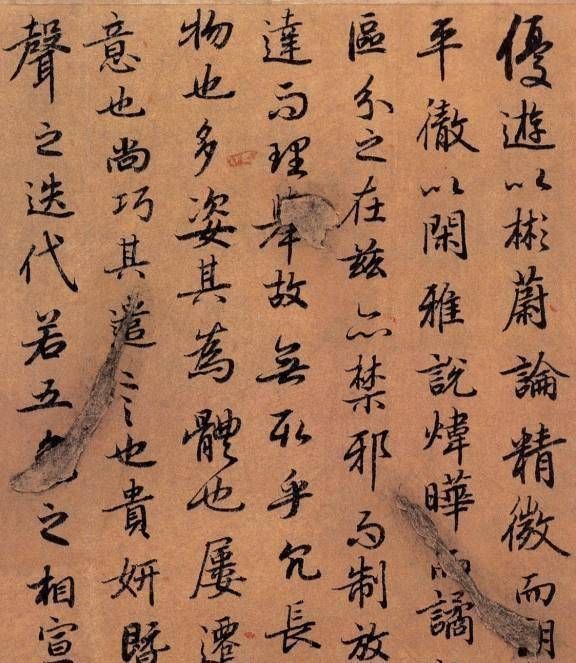 優遊以彬蔚論精微而朗
平徹以閑雅說煒曄而譎
區分之在茲亦禁邪而制放
達而理舉故無取乎冗長
物也多姿其為體也屢遷
意也尚巧其遣言也貴妍暨
聲之迭代若五色之相宣